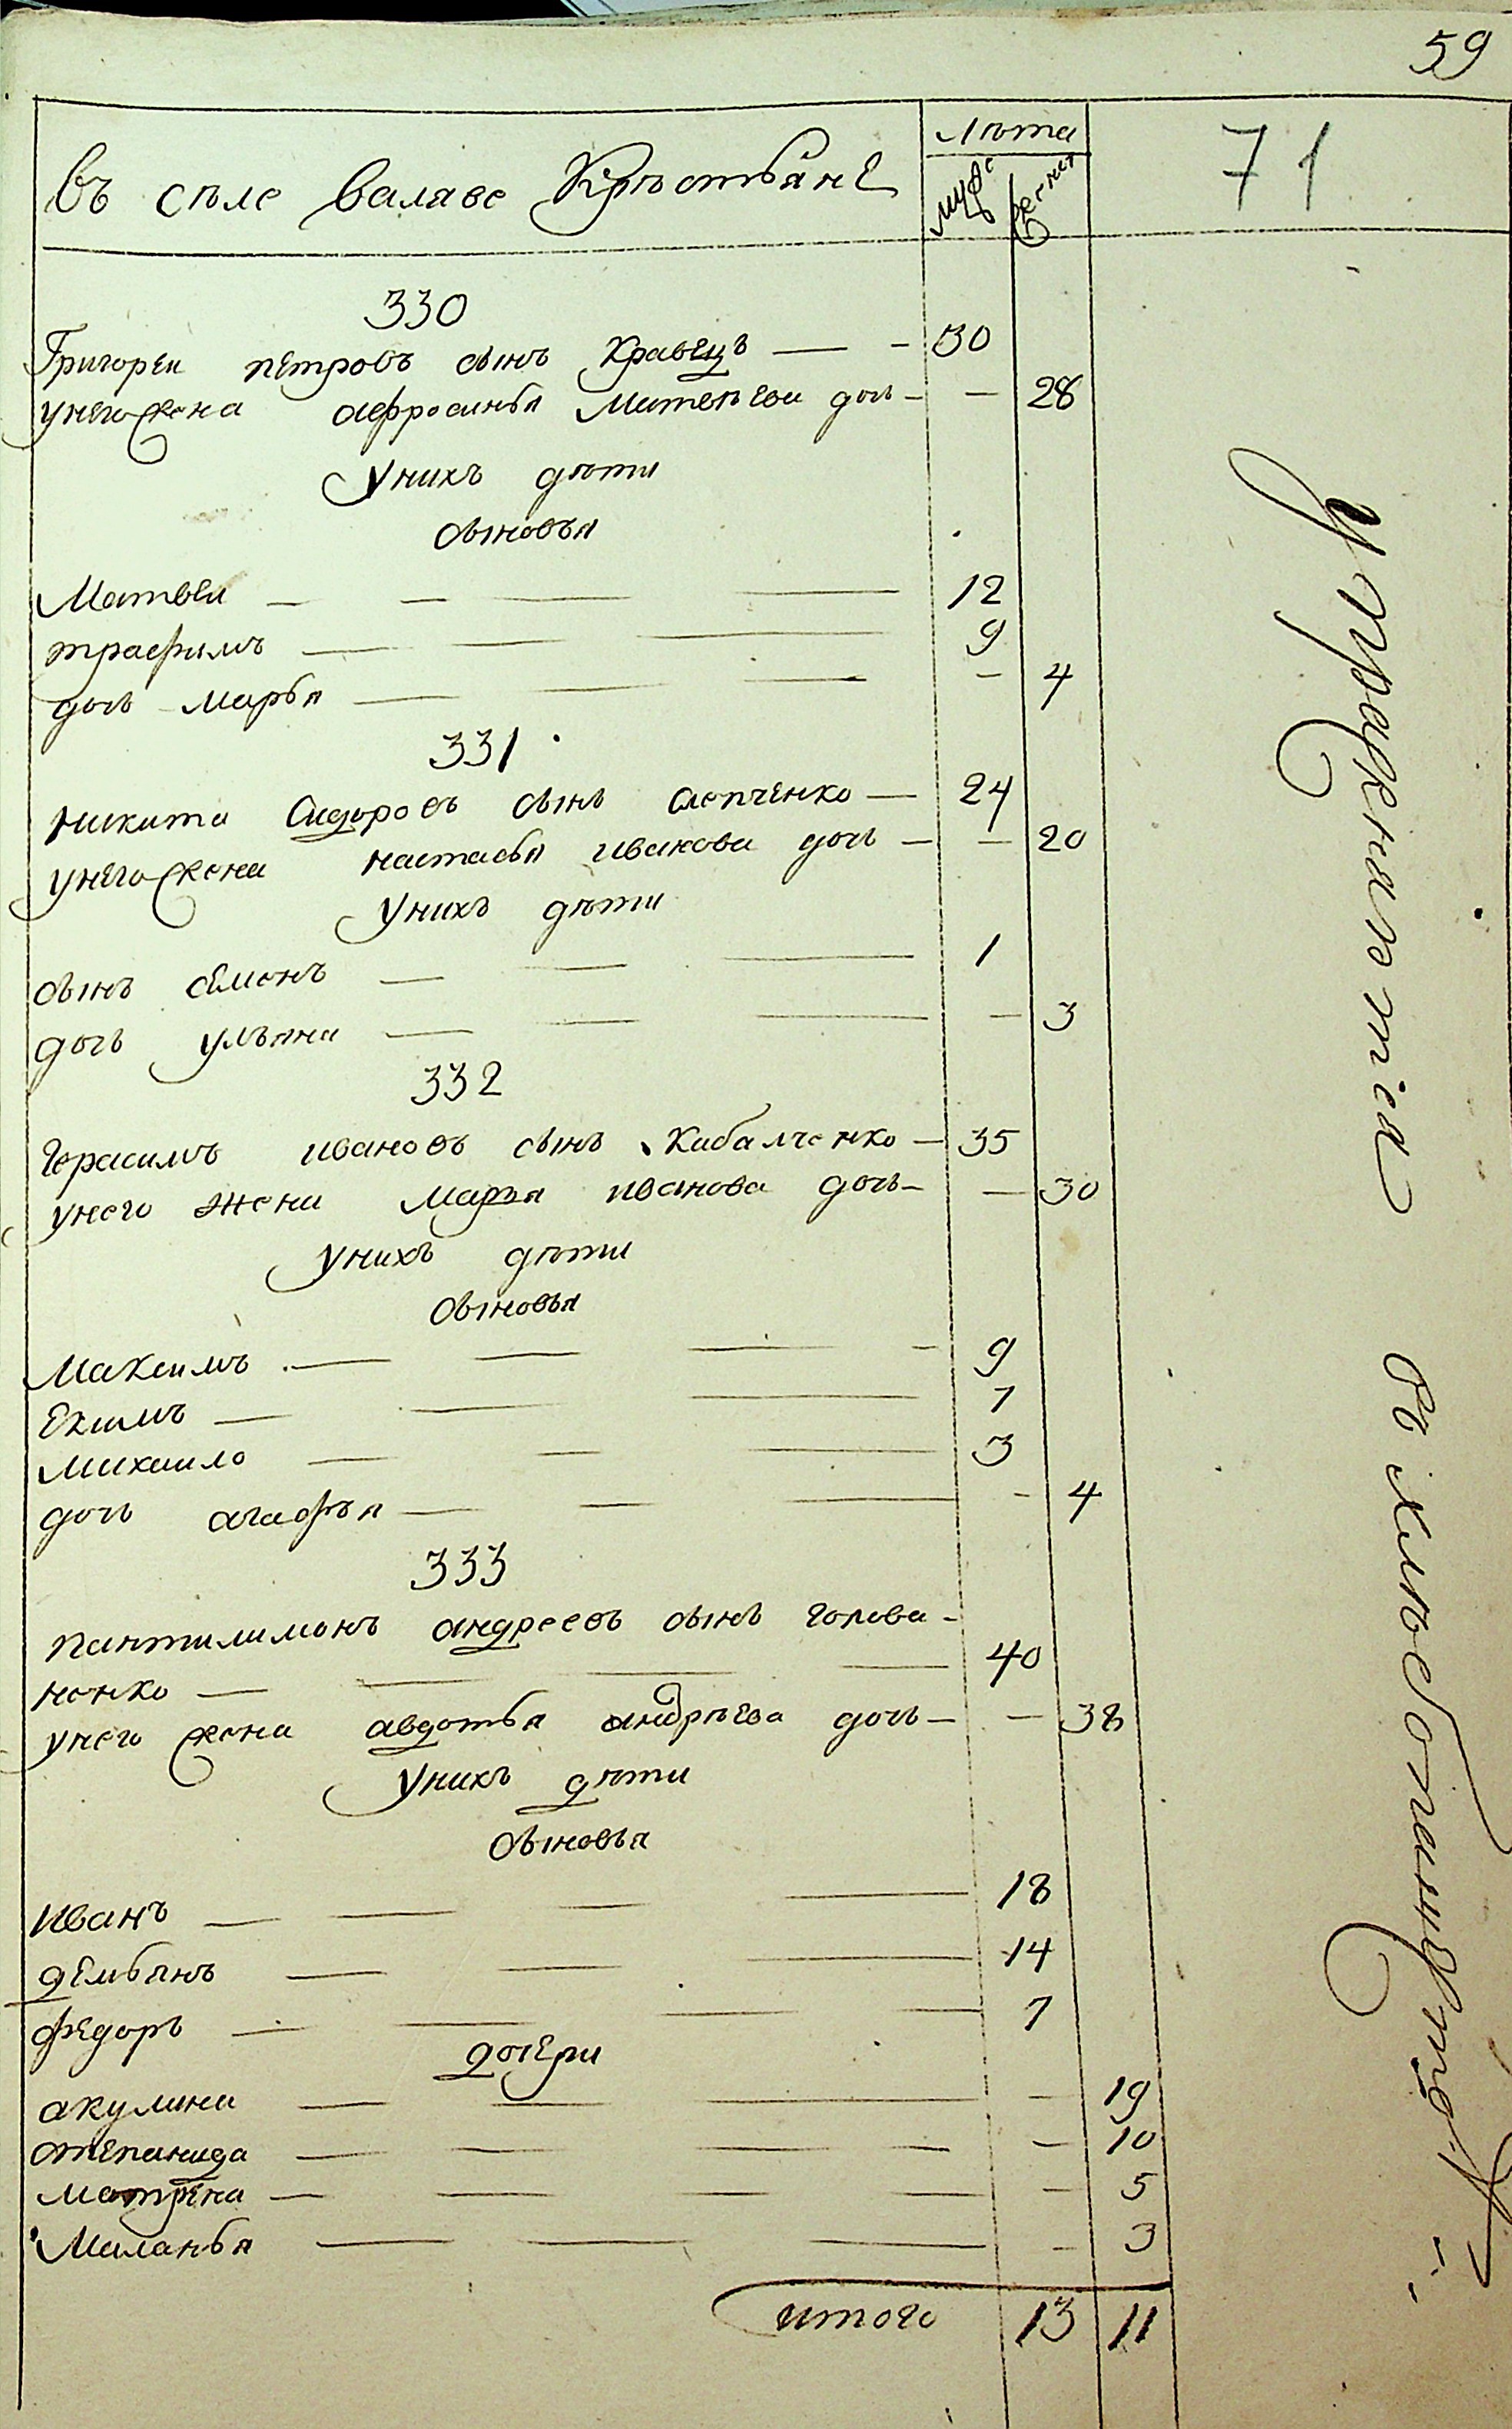 59
Въ селе валаве Крѣстьянѣ
Лѣта
муж
женск
71
330
Григореи петровъ сынъ Кравецъ — - 30
унего жена афросинья Матвѣева дочь - — 28
Унихъ дѣти
сыновья
Матвеи — — — — 12
трафимъ — — — 9
дочь - марья — — — - 4
331
никита Сидоровъ сынъ слепченко — 24
унего жена настасья иванова дочь — — 20
Унихъ дѣти
сынъ семенъ — — — 1
дочь ульяна — — — — 3
332
Герасимъ ивановъ сынъ Кибалченко — 35
унего жена марья иванова дочь - — 30
Унихъ дѣти
сыновья
Максимъ — — — - 9
Екимъ — — — 7
михаило — — — 3
дочь агафья — — — - 4
333
пантилимонъ андреевъ сынъ голова-
ненко — — — — 40
унего жена авдотья андрѣева дочь — — 38
Унихъ дѣти
сыновья
Иванъ — — — — 18
демьянъ — — — 14
федоръ — — — — 7
дочери
акулина — — — — 19
степанида — — — — — 10
матрена — — — — — — 5
Маланья — — — — - 3
итого 13 11
Упражняется
въ хлебопашестве